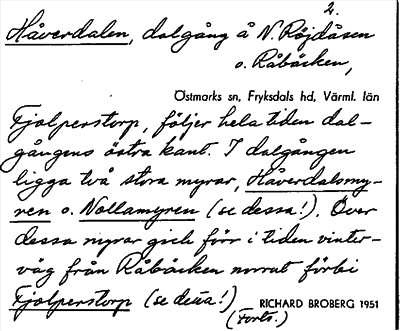 2.
Håverdalen, dalgång å N. Röjdåsen
o. Råbäcken,
Östmarks sn, Fryksdals hd, Värml. län
Fjolperstorp, följer hela tiden dal-
gångens östra kant. I dalgången
ligga två stora myrar, Håverdalsmy-
ren o. Nollamyren (se dessa!). Över
dessa myrar gick förr i tiden vinter-
väg från Råbäcken norrut förbi
Fjolperstorp (se dessa!)
RICHARD BROBERG 1951
(Forts.)